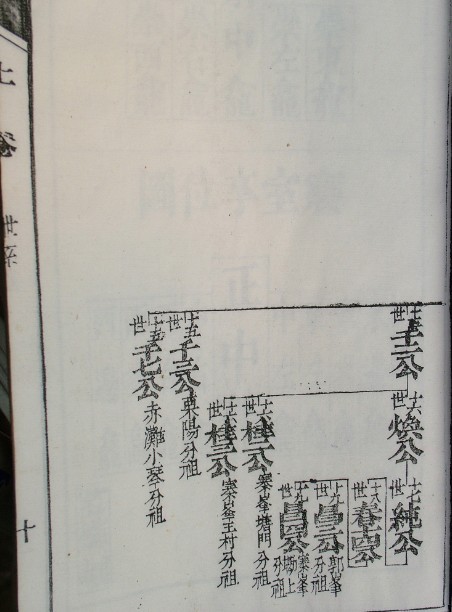 十五世 千二公
十六世 煥公
十七世 純公
十八世 春十四公
十九世 昌三公 郭峯分祖
十九世 昌四公 寨峯塲上分祖
十六世 桂二公 寨峯塘門分祖
十六世 桂三公 寨峯王村分祖
十五世 千三公 栗陽分祖
十五世 千七公 赤灘小琴分祖
上卷 世系
十